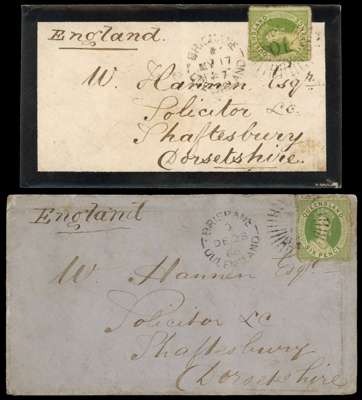 England.
BRISBANE
MY 17
67
QUEENSLAND
W. Hannen Esqr.
Solicitor &c.
Shaftesbury
Dorsetshire.
England
QUEENSLAND
SIX PENCE
BRISBANE
DE 26
QUEENSLAND
W. Hannen Esqre
Solicitor &c
Shaftesbury
Dorsetshire